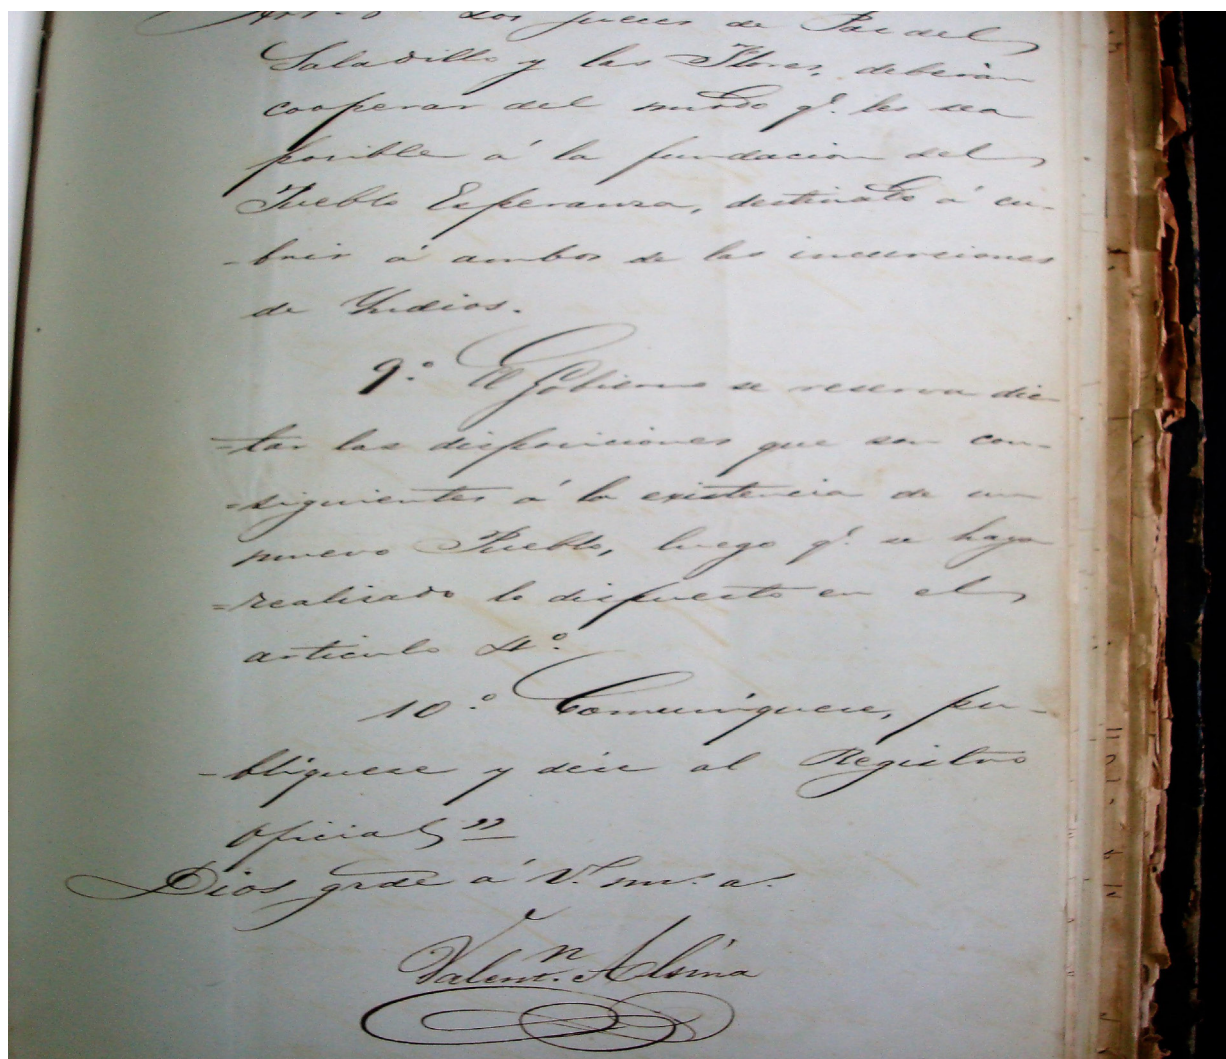 Art. 8º Los Jueces de Paz del
Saladillo y las Flores, deberán
cooperar del modo q.e les sea
posible á la fundacion del
Pueblo Esperanza, destinado á cu-
-brir á ambos de las incursiones
de Yndios.
9.º El Gobierno se reserva dic-
=tar las disposiciones que son con-
=siguientes á la existencia de un
nuevo Pueblo, luego q.e se haya
=realisado lo dispuesto en el
articulo 4.º
10.º Comuníquese, pu-
-bliquese y dése al Registro
oficial"
Dios grde á V. ms. as.
Valent.n Alsina